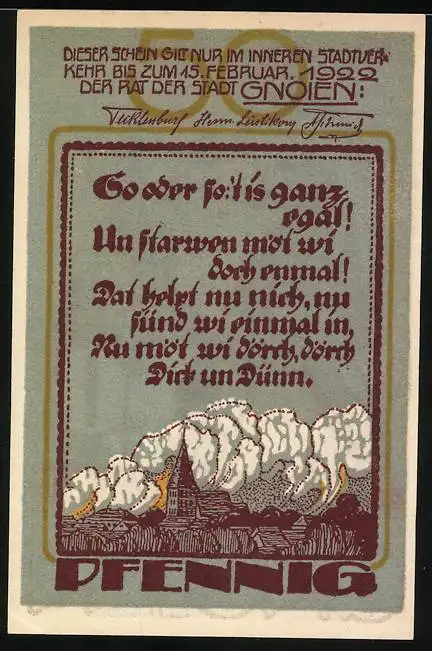 50
DIESER SCHEIN GILT NUR IM INNEREN STADTVER=
KEHR BIS ZUM 15. FEBRUAR. 1922
DER RAT DER STADT GNOIEN:
Tecklenburg
So oder so: 't is ganz
egal!
Un starwen möt wi
doch enmal!
Dat helpt nu nich, nu
sünd wi einmal in,
Nu möt wi dörch, dörch
Dick un Dünn.
PFENNIG